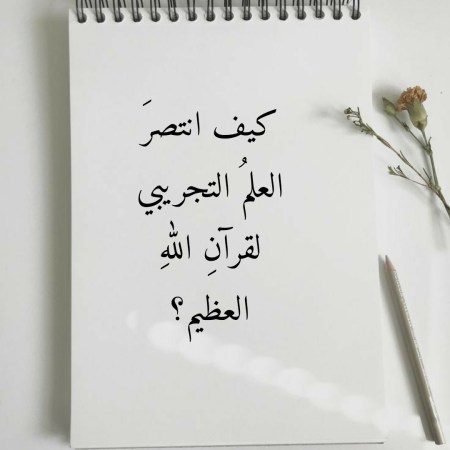 كيف انتصرَ
العلمُ التجريبي
لقرآنِ اللهِ
العظيم؟